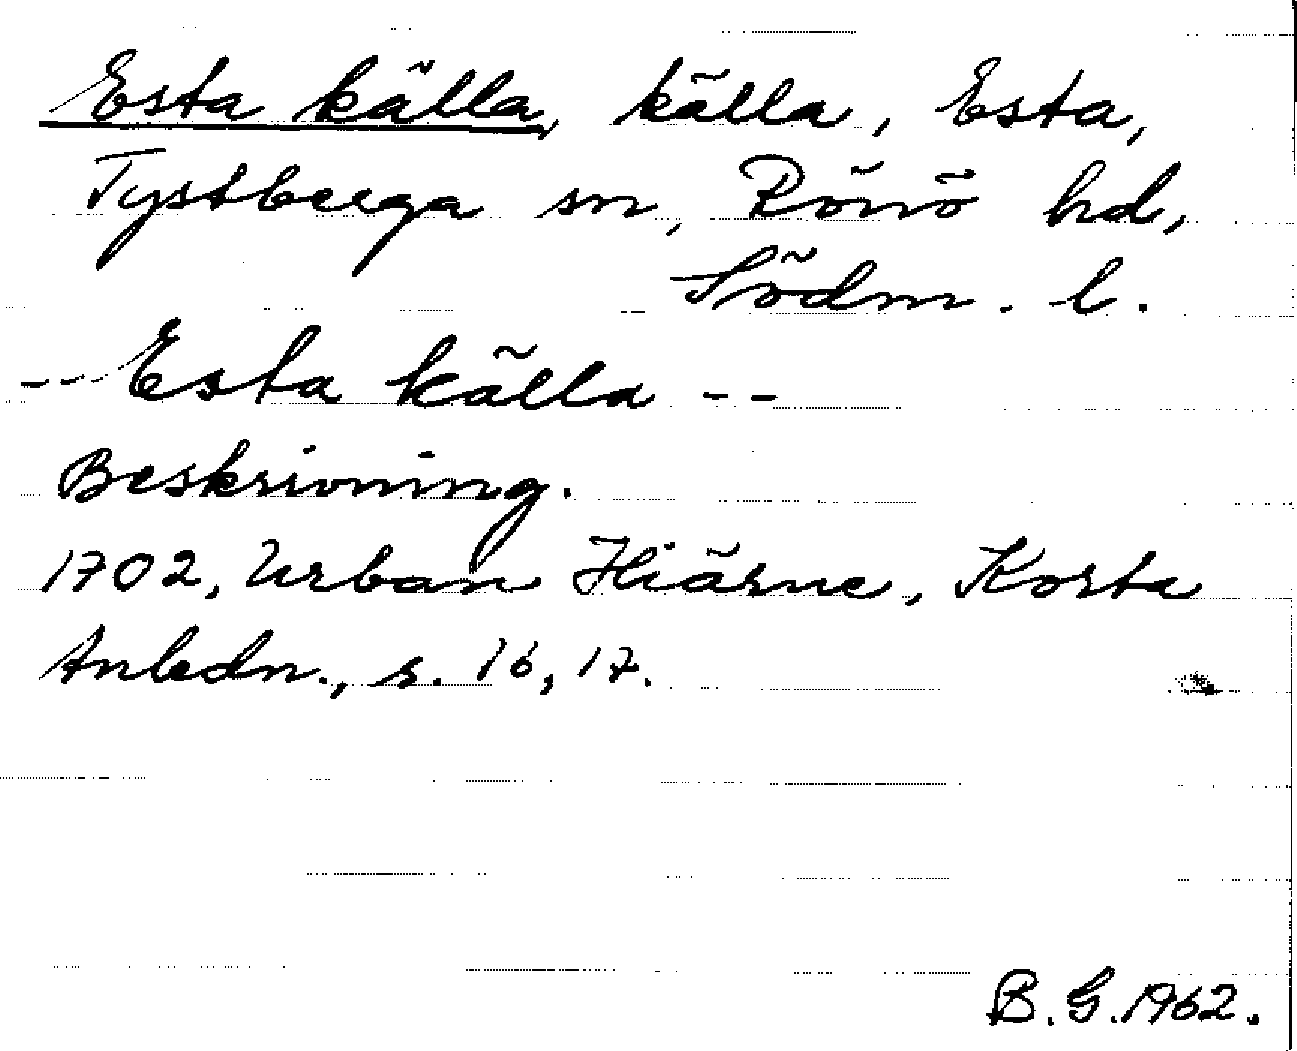 Esta källa, källa, Esta,
Tystberga sn, Rönö hd,
Södm. l.
-- Esta källa --
Beskrivning.
1702, Urban Hiärne, Korta
Anledn., s. 16, 17.
B. G. 1962.